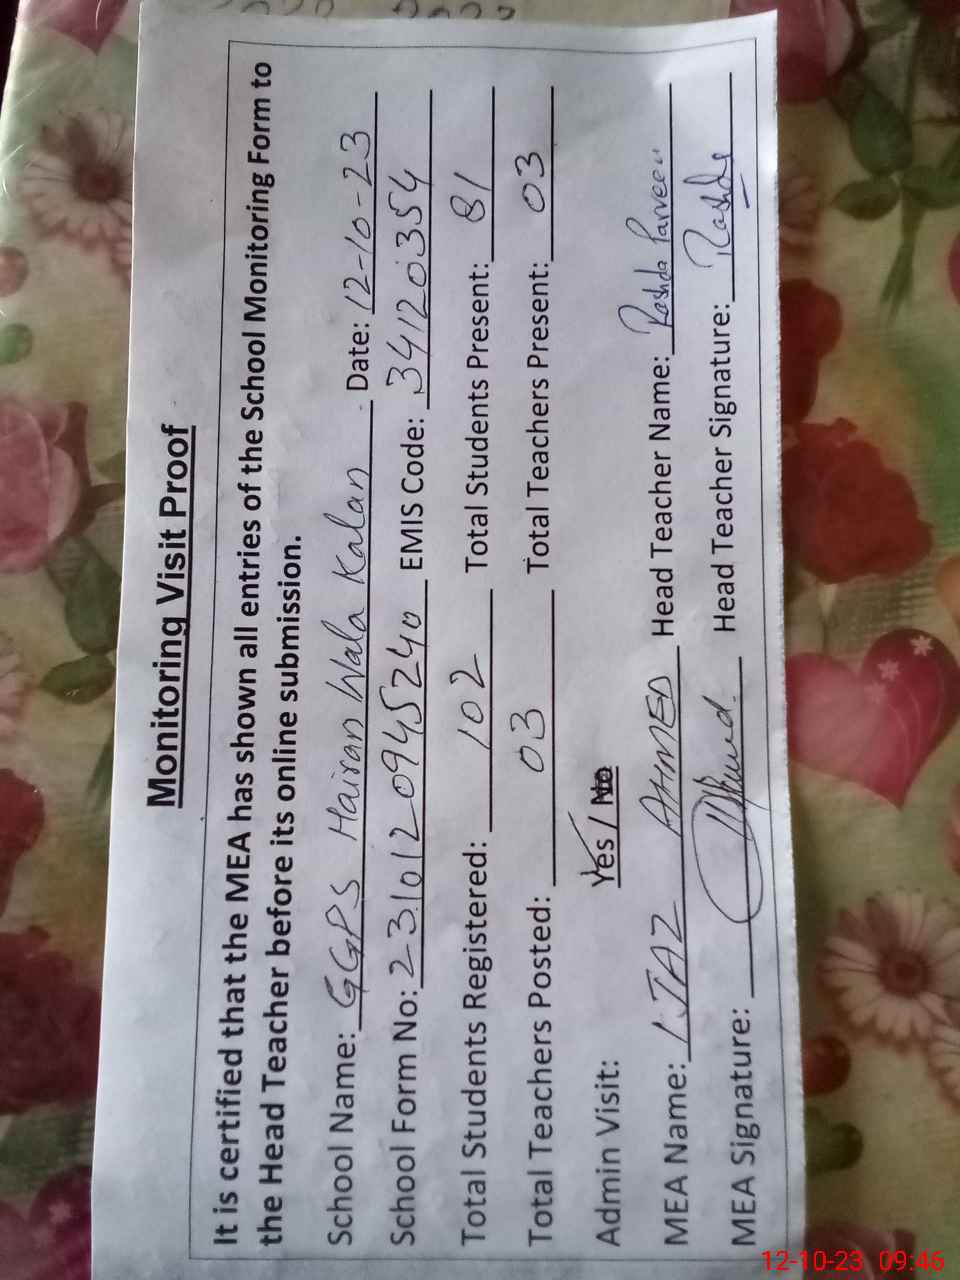 Monitoring Visit Proof
It is certified that the MEA has shown all entries of the School Monitoring Form to
the Head Teacher before its online submission.
School Name: GGPS Hairan Wala Kalan Date: 12-10-23
School Form No: 2310120945240 EMIS Code: 34120354
Total Students Registered: 102 Total Students Present: 81
Total Teachers Posted: 03 Total Teachers Present: 03
Admin Visit: Yes / No
MEA Name: IJAZ AHMED Head Teacher Name: Rashda Parveen
MEA Signature: Head Teacher Signature: Rashda
12-10-23 09:46